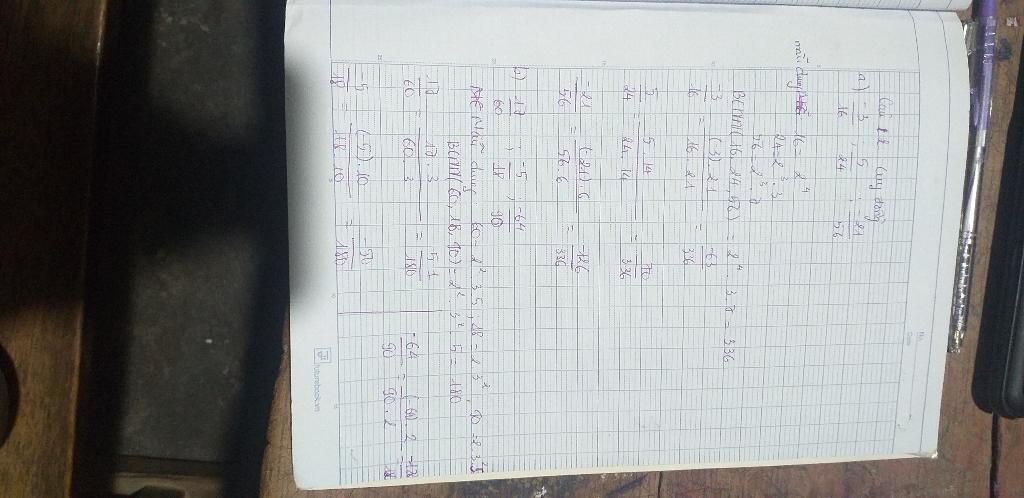 Câu 12 Quy đồng
a) -3/16 ; 5/24 ; -21/56
mẫu chung 16 = 2^4
24 = 2^3 . 3
56 = 2^3 . 7
BCNN (16, 24, 56) = 2^4 . 3 . 7 = 336
-3/16 = (-3) . 21 / 16 . 21 = -63/336
5/24 = 5 . 14 / 24 . 14 = 70/336
-21/56 = (-21) . 6 / 56 . 6 = -126/336
b) -17/60 ; -5/18 ; -64/90
Mẫu chung 60 = 2^2 . 3 . 5 ; 18 = 2 . 3^2 ; 90 = 2 . 3^2 . 5
BCNN (60, 18, 90) = 2^2 . 3^2 . 5 = 180
17/60 = 17 . 3 / 60 . 3 = 51/180
-5/18 = (-5) . 10 / 18 . 10 = -50/180
-64/90 = (-64) . 2 / 90 . 2
No.
Date
futurebook.vn